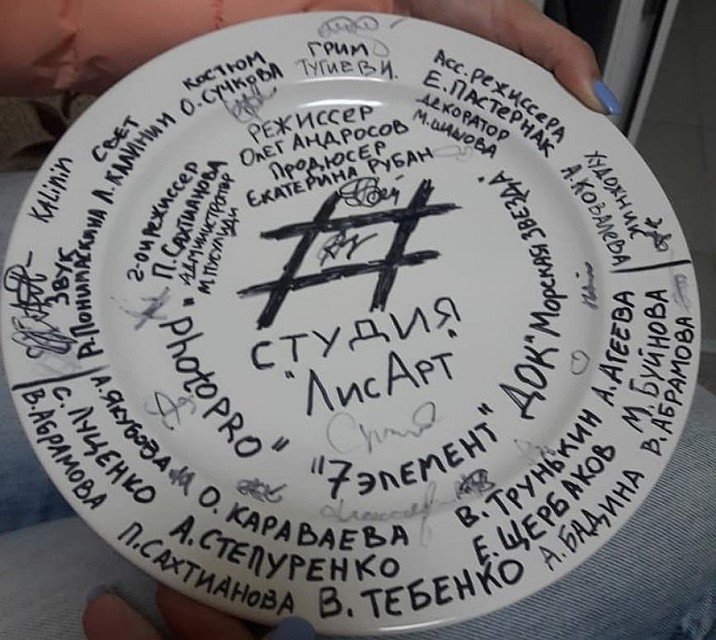 ГРИМ
ТУГИЕВИ.
КОСТЮМ
О.СУЧКОВА
АСС.РЕЖИССЕРА
Е.ПАСТЕРНАК
ДЕКОРАТОР
М.ШИШОВА
РЕЖИССЕР
ОЛЕГ АНДРОСОВ
ПРОДЮСЕР
ЕКАТЕРИНА РУБАН
СВЕТ
Л.КАЛИНИН
Kalinin
ЗВУК
Р.ПОНИПАСКИНА
2-ОЙ РЕЖИССЕР
П.САХТИАНОВА
АДМИНИСТРАТОР
ХУДОЖНИК
А.КОВАЛЕВА
#
СТУДИЯ
"ЛисАрт"
"photoPRO"
"7ЭЛЕМЕНТ"
ДОК"МОРСКАЯ ЗВЕЗДА"
А.ЯКУБОВА
С.ЛУЦЕНКО
В.АБРАМОВА
О.КАРАВАЕВА
А.СТЕПУРЕНКО
П.САХТИАНОВА
В.ТЕБЕНКО
В.ТРУНЬКИН
Е.ЩЕРБАКОВ
А.БАДИНА
А.АГЕЕВА
М.БУЙНОВА
В.АБРАМОВА